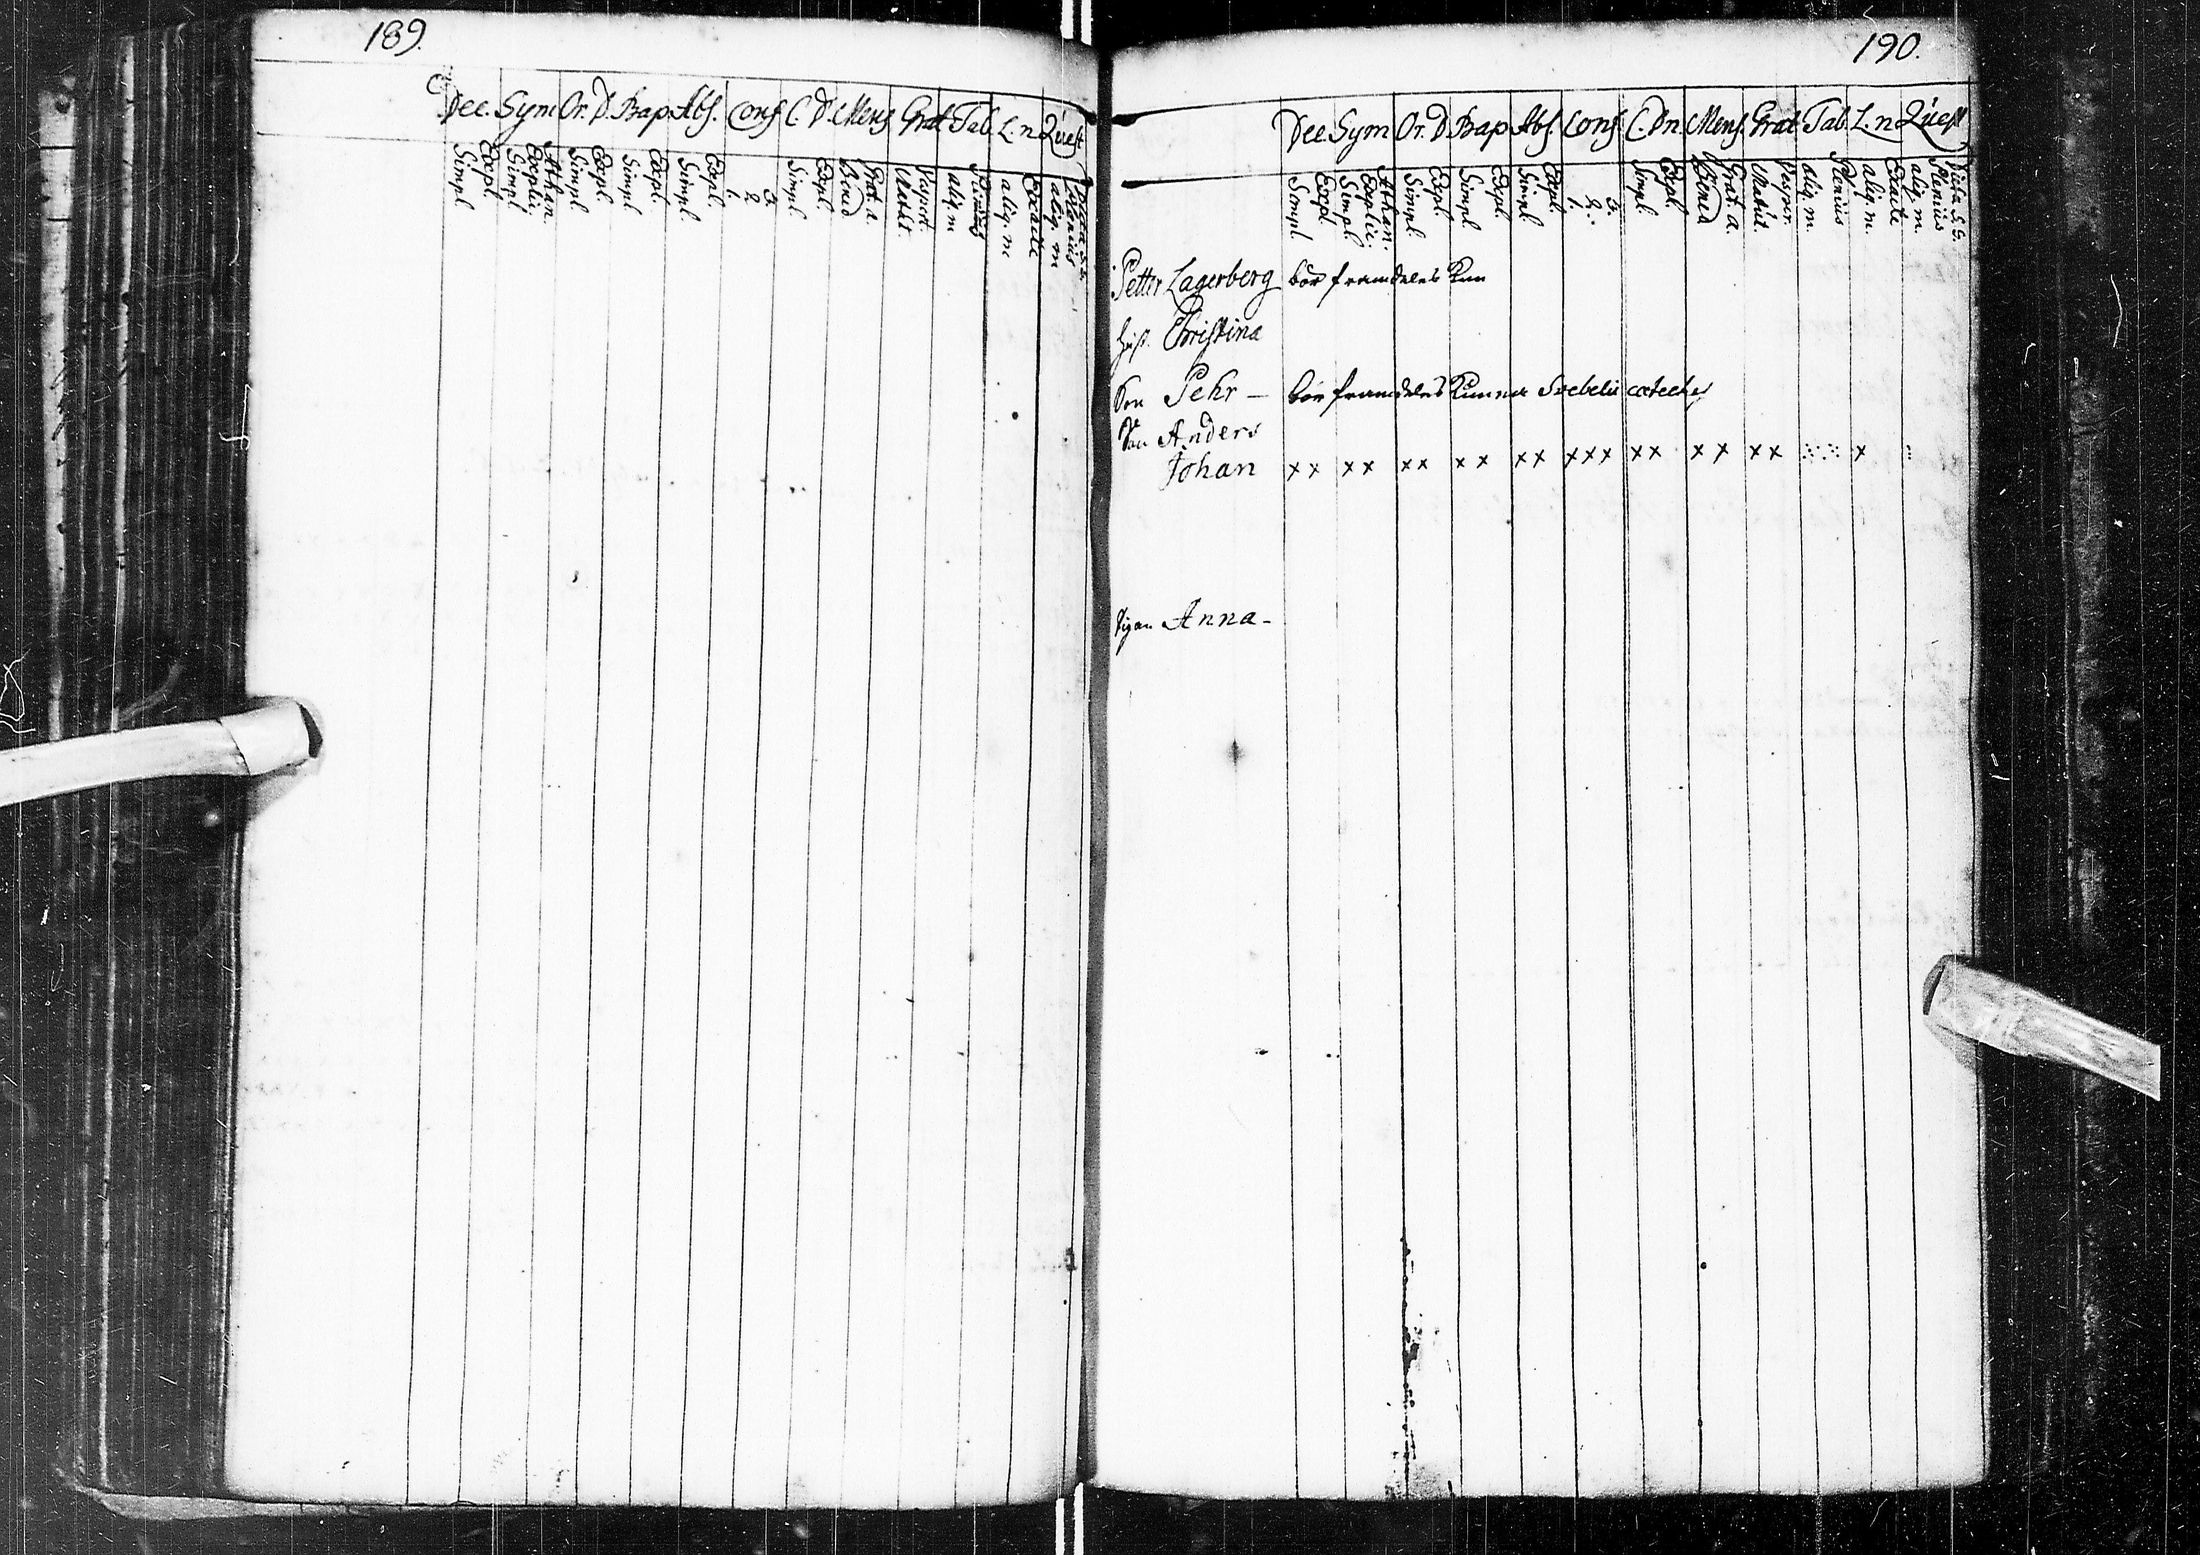 189.
Dec. Sym Or. D. Bap Abs. Conf C. D. Mens Grat Tab L. n Quest
Simpl. Expl. Simpl. Explic. Athan. Simpl. Expl. Simpl Expl. Simpl. Expl. 1. 2. 3. Simpl. Expl. Bened Grat. a. Matut. Vespert. aliq. m Plenius aliq. m Exacte aliq. m Plenius Dicta S. S.
190.
Dec Sym Or. D. Bap Abs. Conf. C. Dn. Mens. Grat Tab. L. n Quest
Simpl. Expl. Simpl. Explic. Athan. Simpl. Expl. Simpl Expl. Simpl. Expl. 1. 2. 3. Simpl. Expl Bened Grat. a. Matut. Vesper. aliq. m. Plenius aliq. m. Exacte aliq. m. Plenius Dicta S. S.
Petter Lagerberg bör framdeles kun
Hust. Christina
Son Pehr — bör framdeles kunna Svebelii cateches
Son Anders
Johan xx xx xx xx xx xxx xx xx xx x
Pigan Anna -